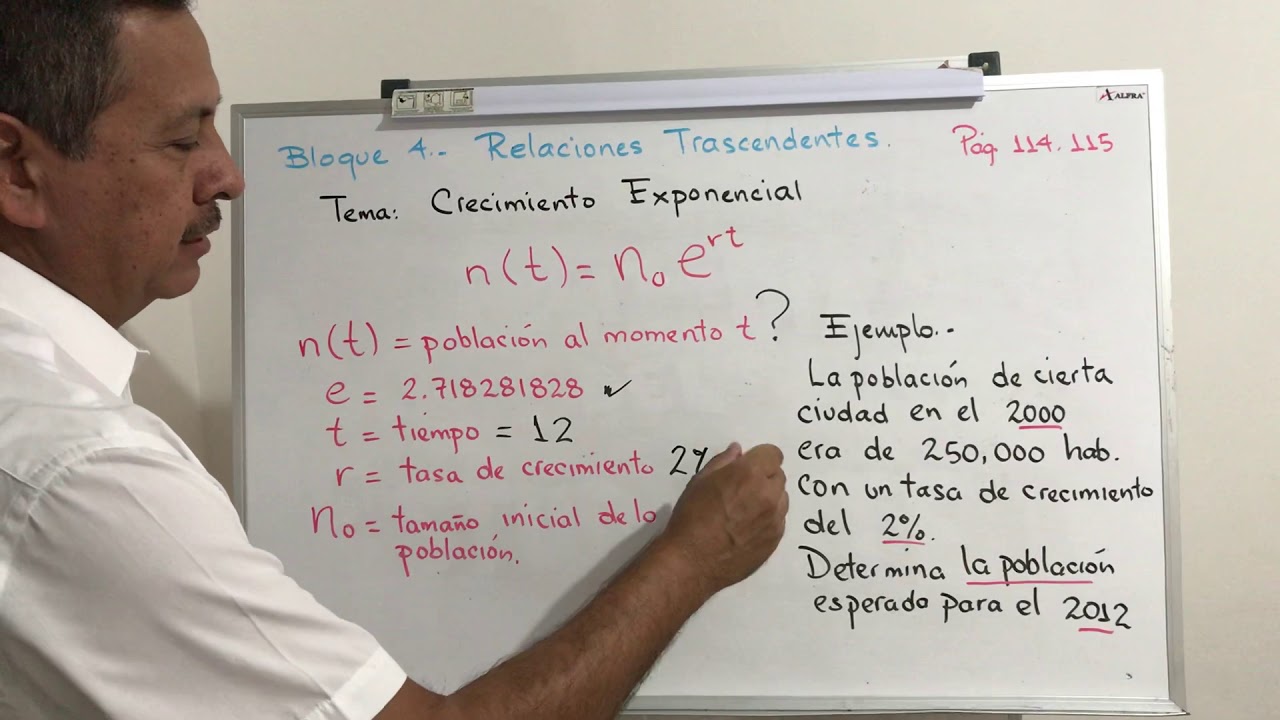 ALFRA
Bloque 4.- Relaciones Trascendentes.
Pág. 114.115
Tema: Crecimiento Exponencial
n(t) = n₀ e^rt
n(t) = población al momento t ?
e = 2.718281828 ✓
t = tiempo = 12
r = tasa de crecimiento 2%
n₀ = tamaño inicial de la
población.
Ejemplo.-
La población de cierta
ciudad en el 2000
era de 250,000 hab.
con un tasa de crecimiento
del 2%.
Determina la población
esperado para el 2012